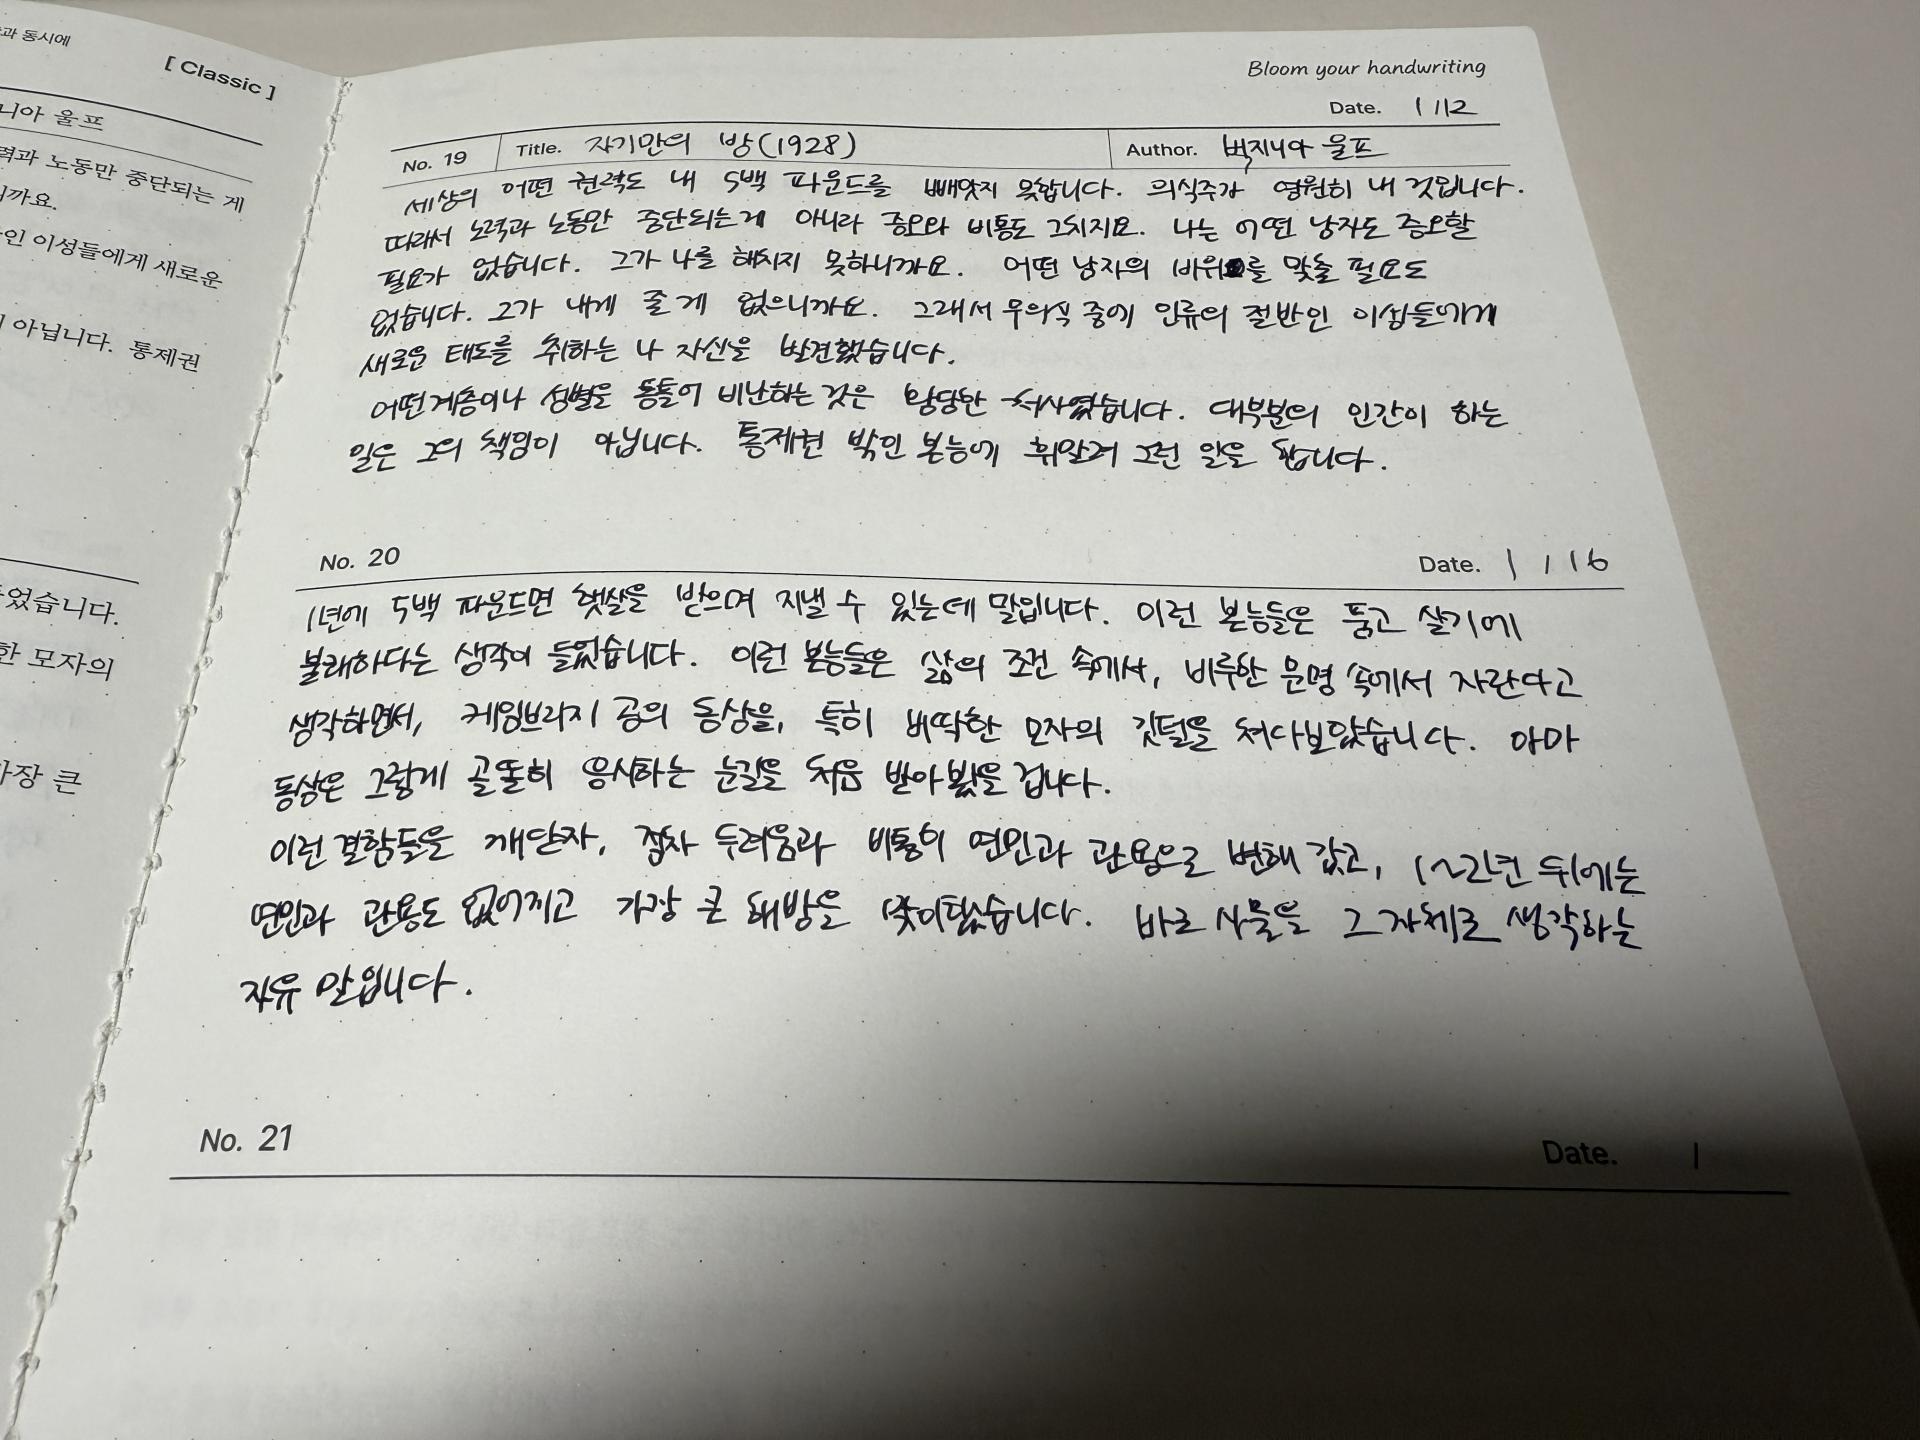 과 동시에
[ Classic ]
니아 울프
력과 노동만 중단되는 게
니까요.
인 이성들에게 새로운
아닙니다. 통제권
었습니다.
한 모자의
가장 큰
Bloom your handwriting
Date. 1 / 12
No. 19 Title. 자기만의 방(1928) Author. 버지니아 울프
세상의 어떤 권력도 내 5백 파운드를 빼앗지 못합니다. 의식주가 영원히 내 것입니다.
따라서 노력과 노동만 중단되는게 아니라 증오와 비통도 그치지요. 나는 어떤 남자도 증오할
필요가 없습니다. 그가 나를 해치지 못하니까요. 어떤 남자의 비위를 맞출 필요도
없습니다. 그가 내게 줄 게 없으니까요. 그래서 무의식 중에 인류의 절반인 이성들에게
새로운 태도를 취하는 나 자신을 발견했습니다.
어떤 계층이나 성별을 통틀어 비난하는 것은 황당한 처사였습니다. 대부분의 인간이 하는
일은 그의 책임이 아닙니다. 통제권 밖인 본능에 휘말려 그런 일을 합니다.
No. 20 Date. 1 / 16
1년에 5백 파운드면 햇살을 받으며 지낼 수 있는데 말입니다. 이런 본능들은 품고 살기에
불쾌하다는 생각이 들었습니다. 이런 본능들은 삶의 조건 속에서, 비루한 문명 속에서 자란다고
생각하면서, 케임브리지 공의 동상을, 특히 삐딱한 모자의 깃털을 쳐다보았습니다. 아마
동상은 그렇게 골똘히 응시하는 눈길을 처음 받아봤을 겁니다.
이런 결함들을 깨닫자, 점차 두려움과 비통이 연민과 관용으로 변해 갔고, 1~2년 뒤에는
연민과 관용도 없어지고 가장 큰 해방을 맞이했습니다. 바로 사물을 그 자체로 생각하는
자유 말입니다.
No. 21 Date. /